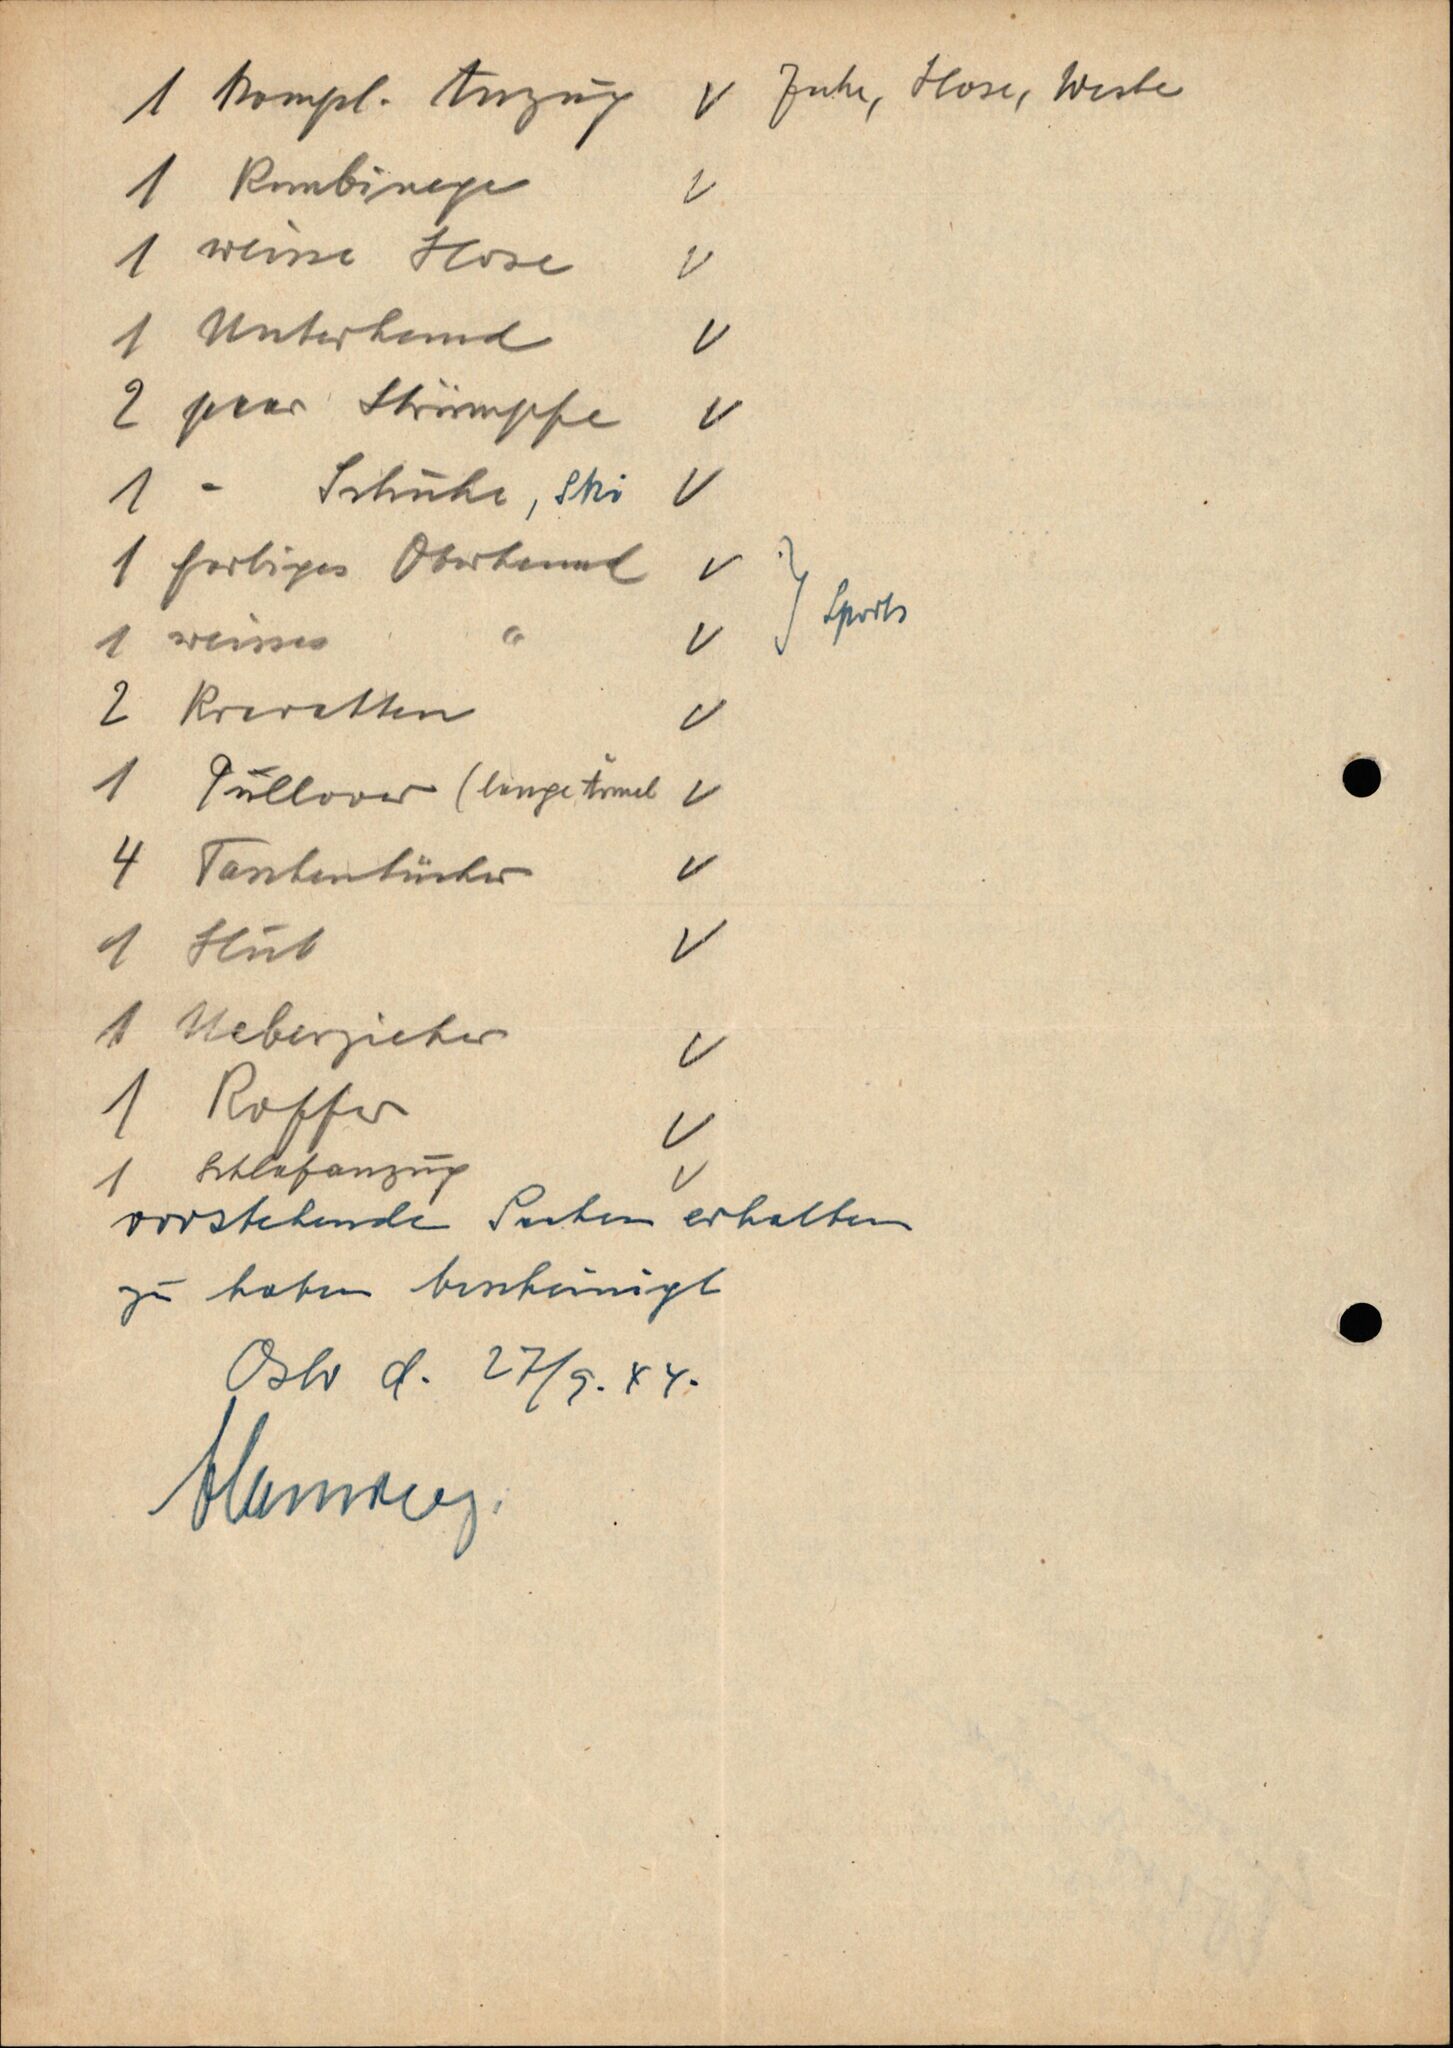 1 kompl. Anzug v Jake, Hose, Weste
1 Kombinege v
1 weisse Hose v
1 Unterhemd v
2 paar Strümpfe v
1 - Schuhe, Ski v
1 farbiges Oberhemd v
1 weisses " v } Sports
2 Krawatten v
1 Pullover (lange Ärmel v
4 Taschentücher v
1 Hut v
1 Ueberzieher v
1 Koffer v
1 Schlafanzug v
vorstehende Sachen erhalten
zu haben bescheinigt
Oslo d. 27/9.44.